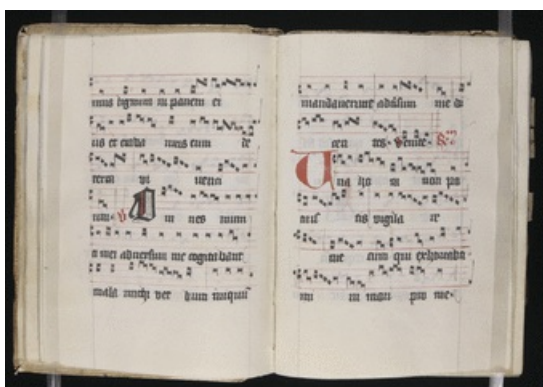 mus lignum in panem ei
us et erada mus eum de
terra vi uenci
um. v O m nes inimi
ci mei adversum me cogitabant
mala michi ver bum iniquū
mandaverunt adversum me di
cen tes. Venite.
Una ho ra non po
tuis tis vigila re
me cum qui exhortaba
mi ni mori pro me.